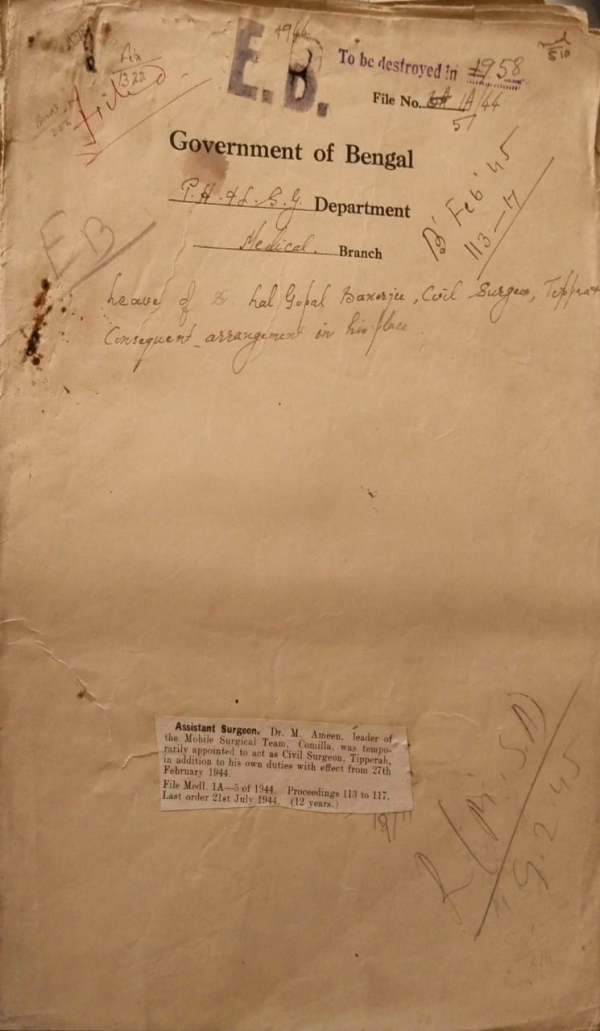 E.B.
To be destroyed in 1958
File No. 1A/44
5
Filed
Government of Bengal
P.H. & L.S.G. Department
Medical. Branch
'B' Feb '45
113-17
EB
Leave of Dr. Lal Gopal Banerjee, Civil Surgeon, Tippera
Consequent arrangement in his place.
Assistant Surgeon. Dr. M. Ameen, leader of
the Mobile Surgical Team, Comilla, was tempo-
rarily appointed to act as Civil Surgeon, Tipperah,
in addition to his own duties with effect from 27th
February 1944.
File Medl. 1A—5 of 1944. Proceedings 113 to 117.
Last order 21st July 1944. (12 years.)